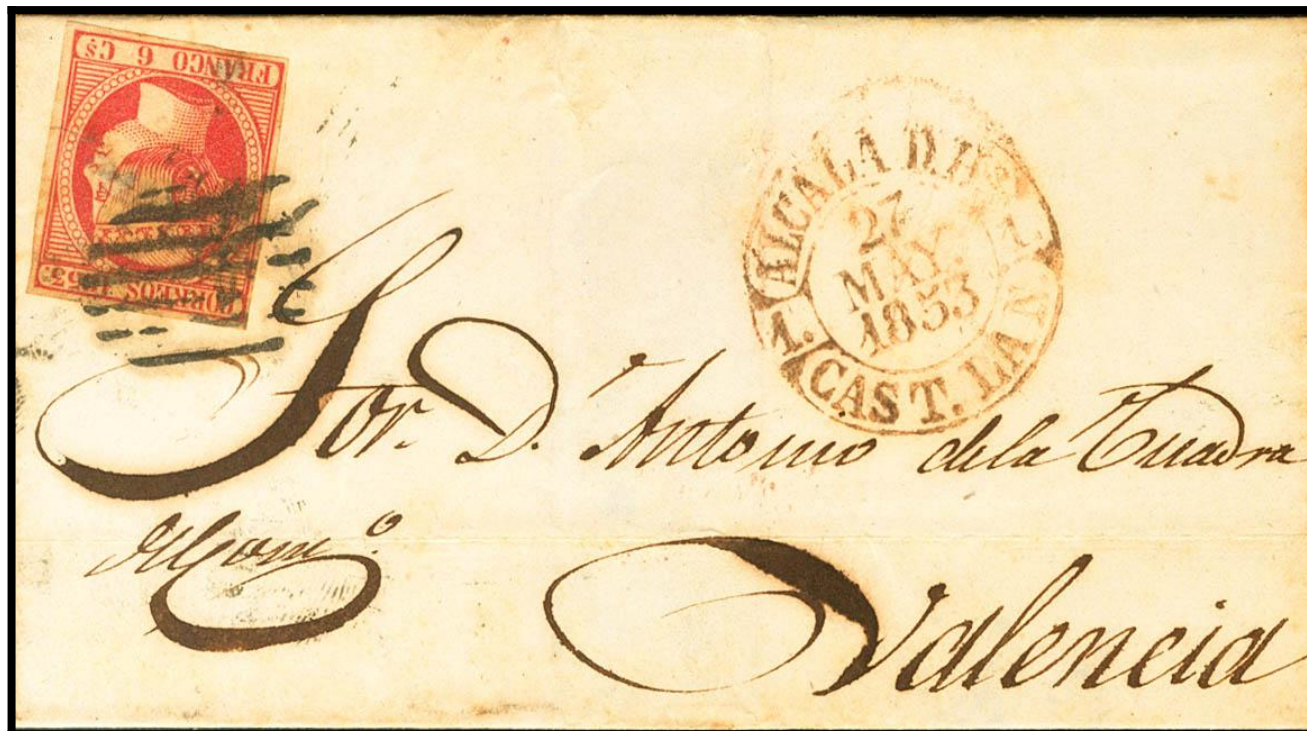 FRANCO 6 Cs
CORREOS 1853
ALCALA D.
27
MAY.
1853
1.
CAST. LA N
Sor. D. Antonio de la Cuadra
del Com.o
Valencia